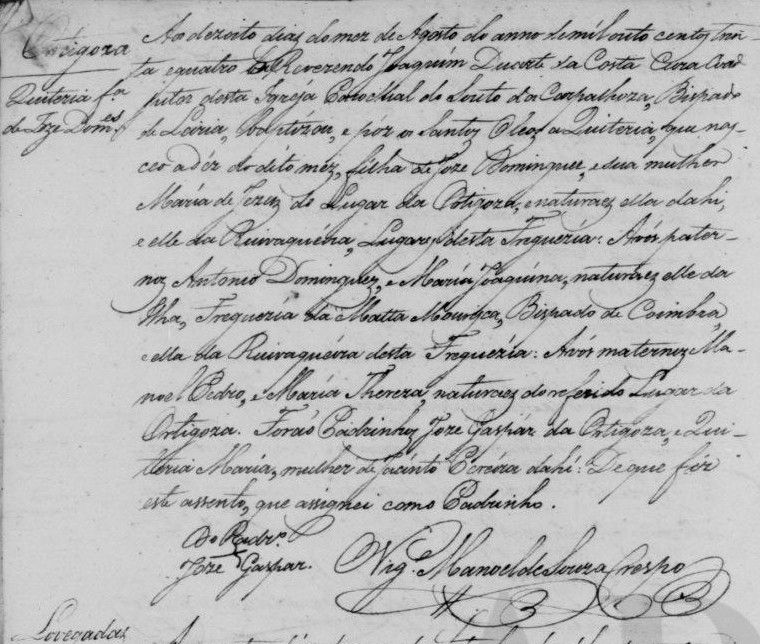 Ortigoza
Quiteria f.a
de Joze Dom.es
Aos dezoito dias do mez de Agosto do anno de mil outo centos trin-
ta e quatro o Reverendo Joaquim Duarte da Costa Cura Coad
jutor desta Igreja Parochial do Souto da Carpalhoza, Bispado
de Leiria, baptizou, e pôz os Santos Oleos a Quiteria, que nas-
ceo a dez do dito mez, filha de Joze Domingues, e sua mulher
Maria de Jezus do Lugar da Ortigoza, e naturaes ella dahi,
e elle da Ruivaqueira, Lugares desta Freguezia: Avós pater-
nos Antonio Domingues, e Maria Joaquina, naturaes elle da
Ilha, Freguezia da Matta Mourisca, Bispado de Coimbra,
e ella da Ruivaqueira desta Freguezia: Avós maternos Ma-
noel Pedro, e Maria Thereza, naturaes do referido Lugar da
Ortigoza. Forão Padrinhos Joze Gaspar da Ortigoza, e Qui-
teria Maria, mulher de Jacinto Pereira dahi: De que fiz
este assento, que assignei com o Padrinho.
Do Padr.o
Joze Gaspar.
Vig.o Manoel de Souza Crespo
Lovegadas